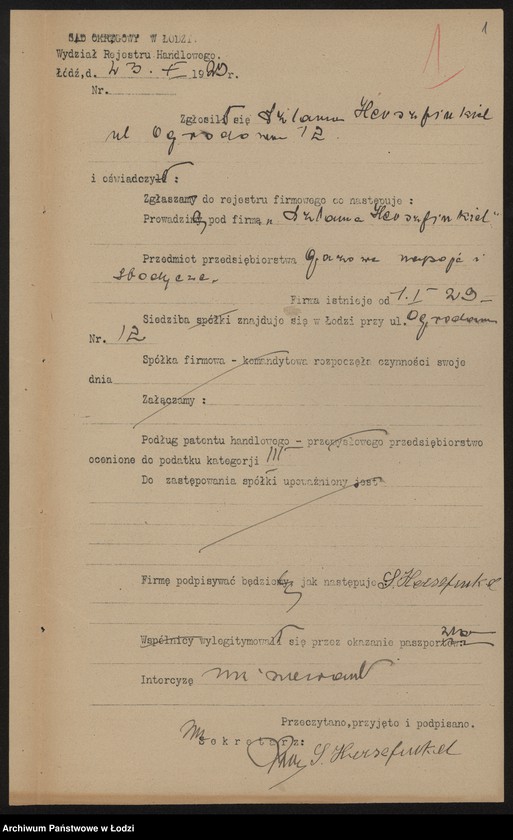 1
1
SĄD OKRĘGOWY W ŁODZI.
Wydział Rejestru Handlowego.
Łódź,d. 23. V 1929 r.
Nr.
Zgłosił się Szlama Herszfinkiel
ul Ogrodowa 12.
i oświadczył :
Zgłaszamy do rejestru firmowego co następuje :
Prowadzimy pod firmą „Szlama Herszfinkiel"
Przedmiot przedsiębiorstwa Gazowe napoje i
słodycze.
Firma istnieje od 1.I 29
Siedziba spółki znajduje się w Łodzi przy ul. Ogrodowa
Nr. 12
Spółka firmowa - komandytowa rozpoczęła czynności swoje
dnia
Załączamy :
Podług patentu handlowego - przemysłowego przedsiębiorstwo
ocenione do podatku kategorji III
Do zastępowania spółki upoważniony jest
Firmę podpisywać będziemy jak następuje: S. Herszfinkel
Wspólnicy wylegitymowali się przez okazanie paszportów
Intercyzę nie zawarł
Przeczytano,przyjęto i podpisano.
Sekretarz:
S. Herszfinkel
Archiwum Państwowe w Łodzi